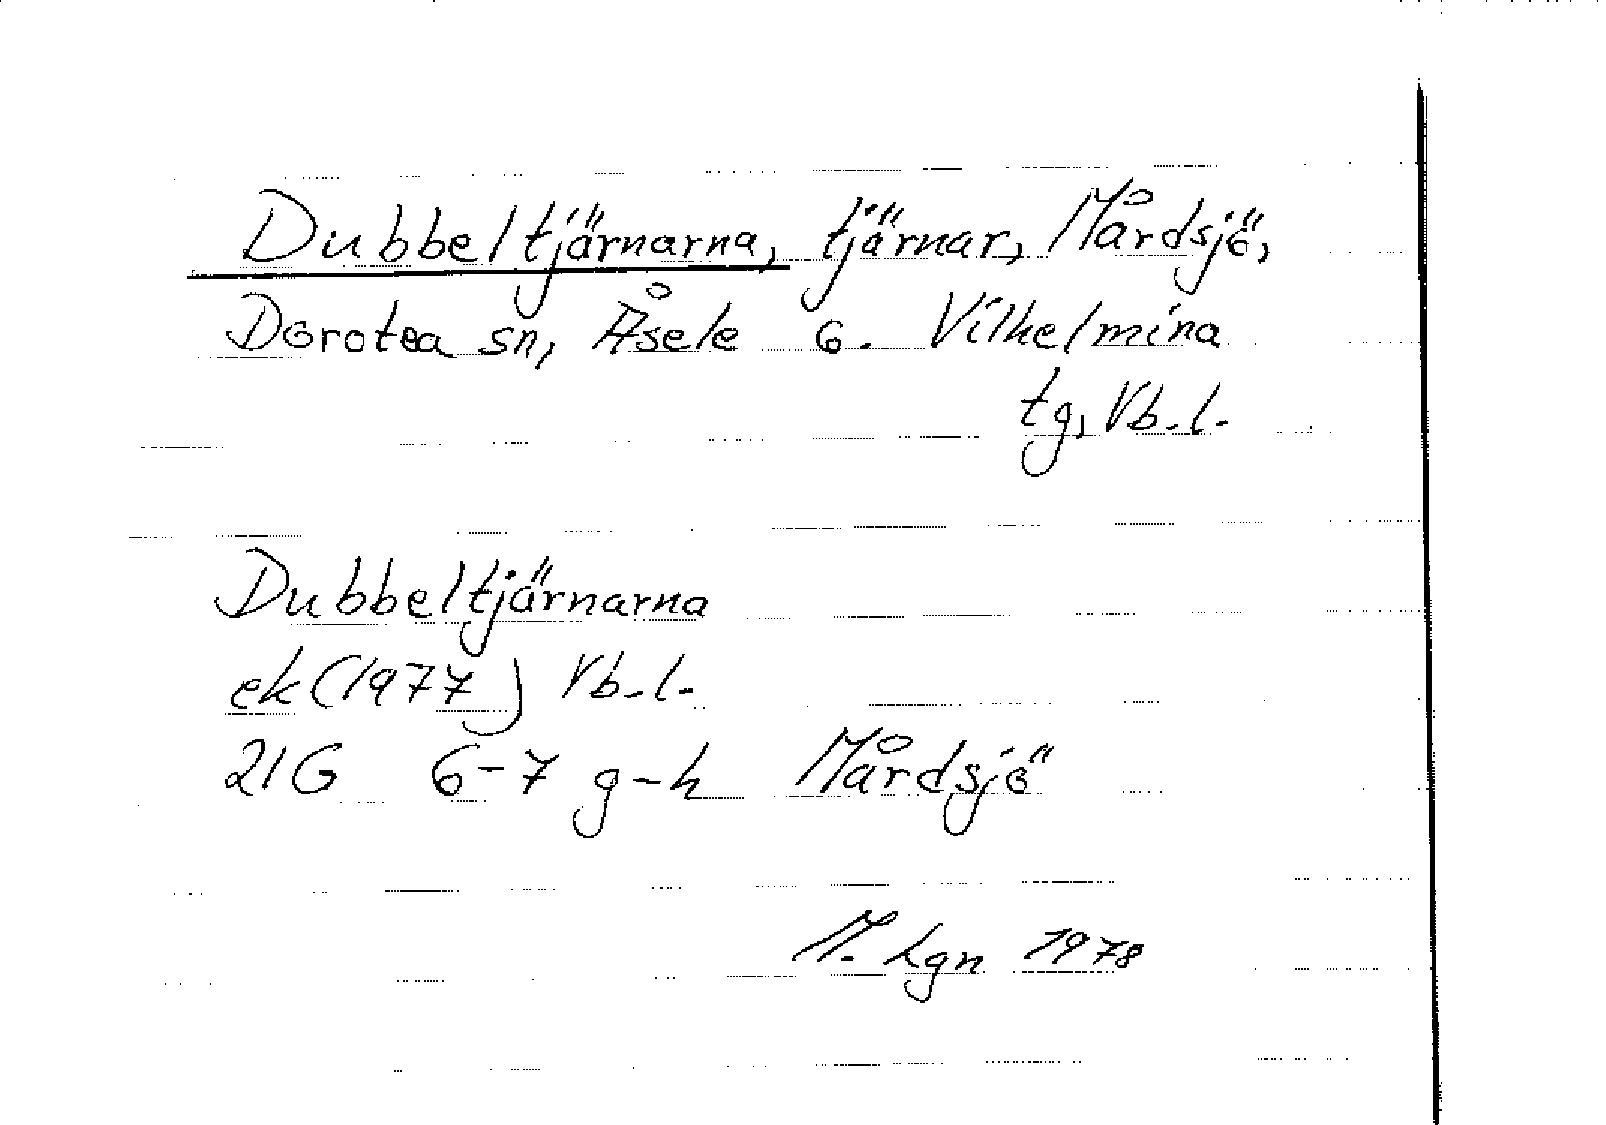 Dubbeltjärnarna, tjärnar, Mårdsjö,
Dorotea sn, Åsele 6. Vilhelmina
tg, Vb.l.
Dubbeltjärnarna
ek (1977) Vb.l.
21G 6-7 g-h Mårdsjö
M. Lgn 1978